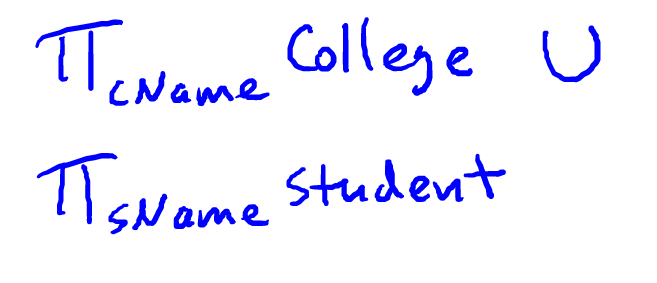 π cName College ∪
π sName student